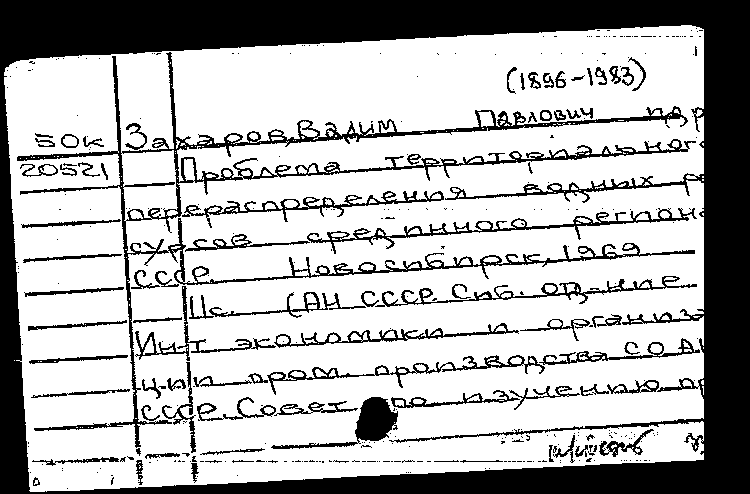 (1896-1983)
50к Захаров, Вадим Павлович
20521 Проблема территориального
перераспределения водных ре
сурсов срединного регион
СССР. Новосибирск, 1969
11с. (АН СССР. Сиб. отд-ние.
Ин-т экономики и организа
ции пром. производства СО АН
СССР. Совет по изучению пр